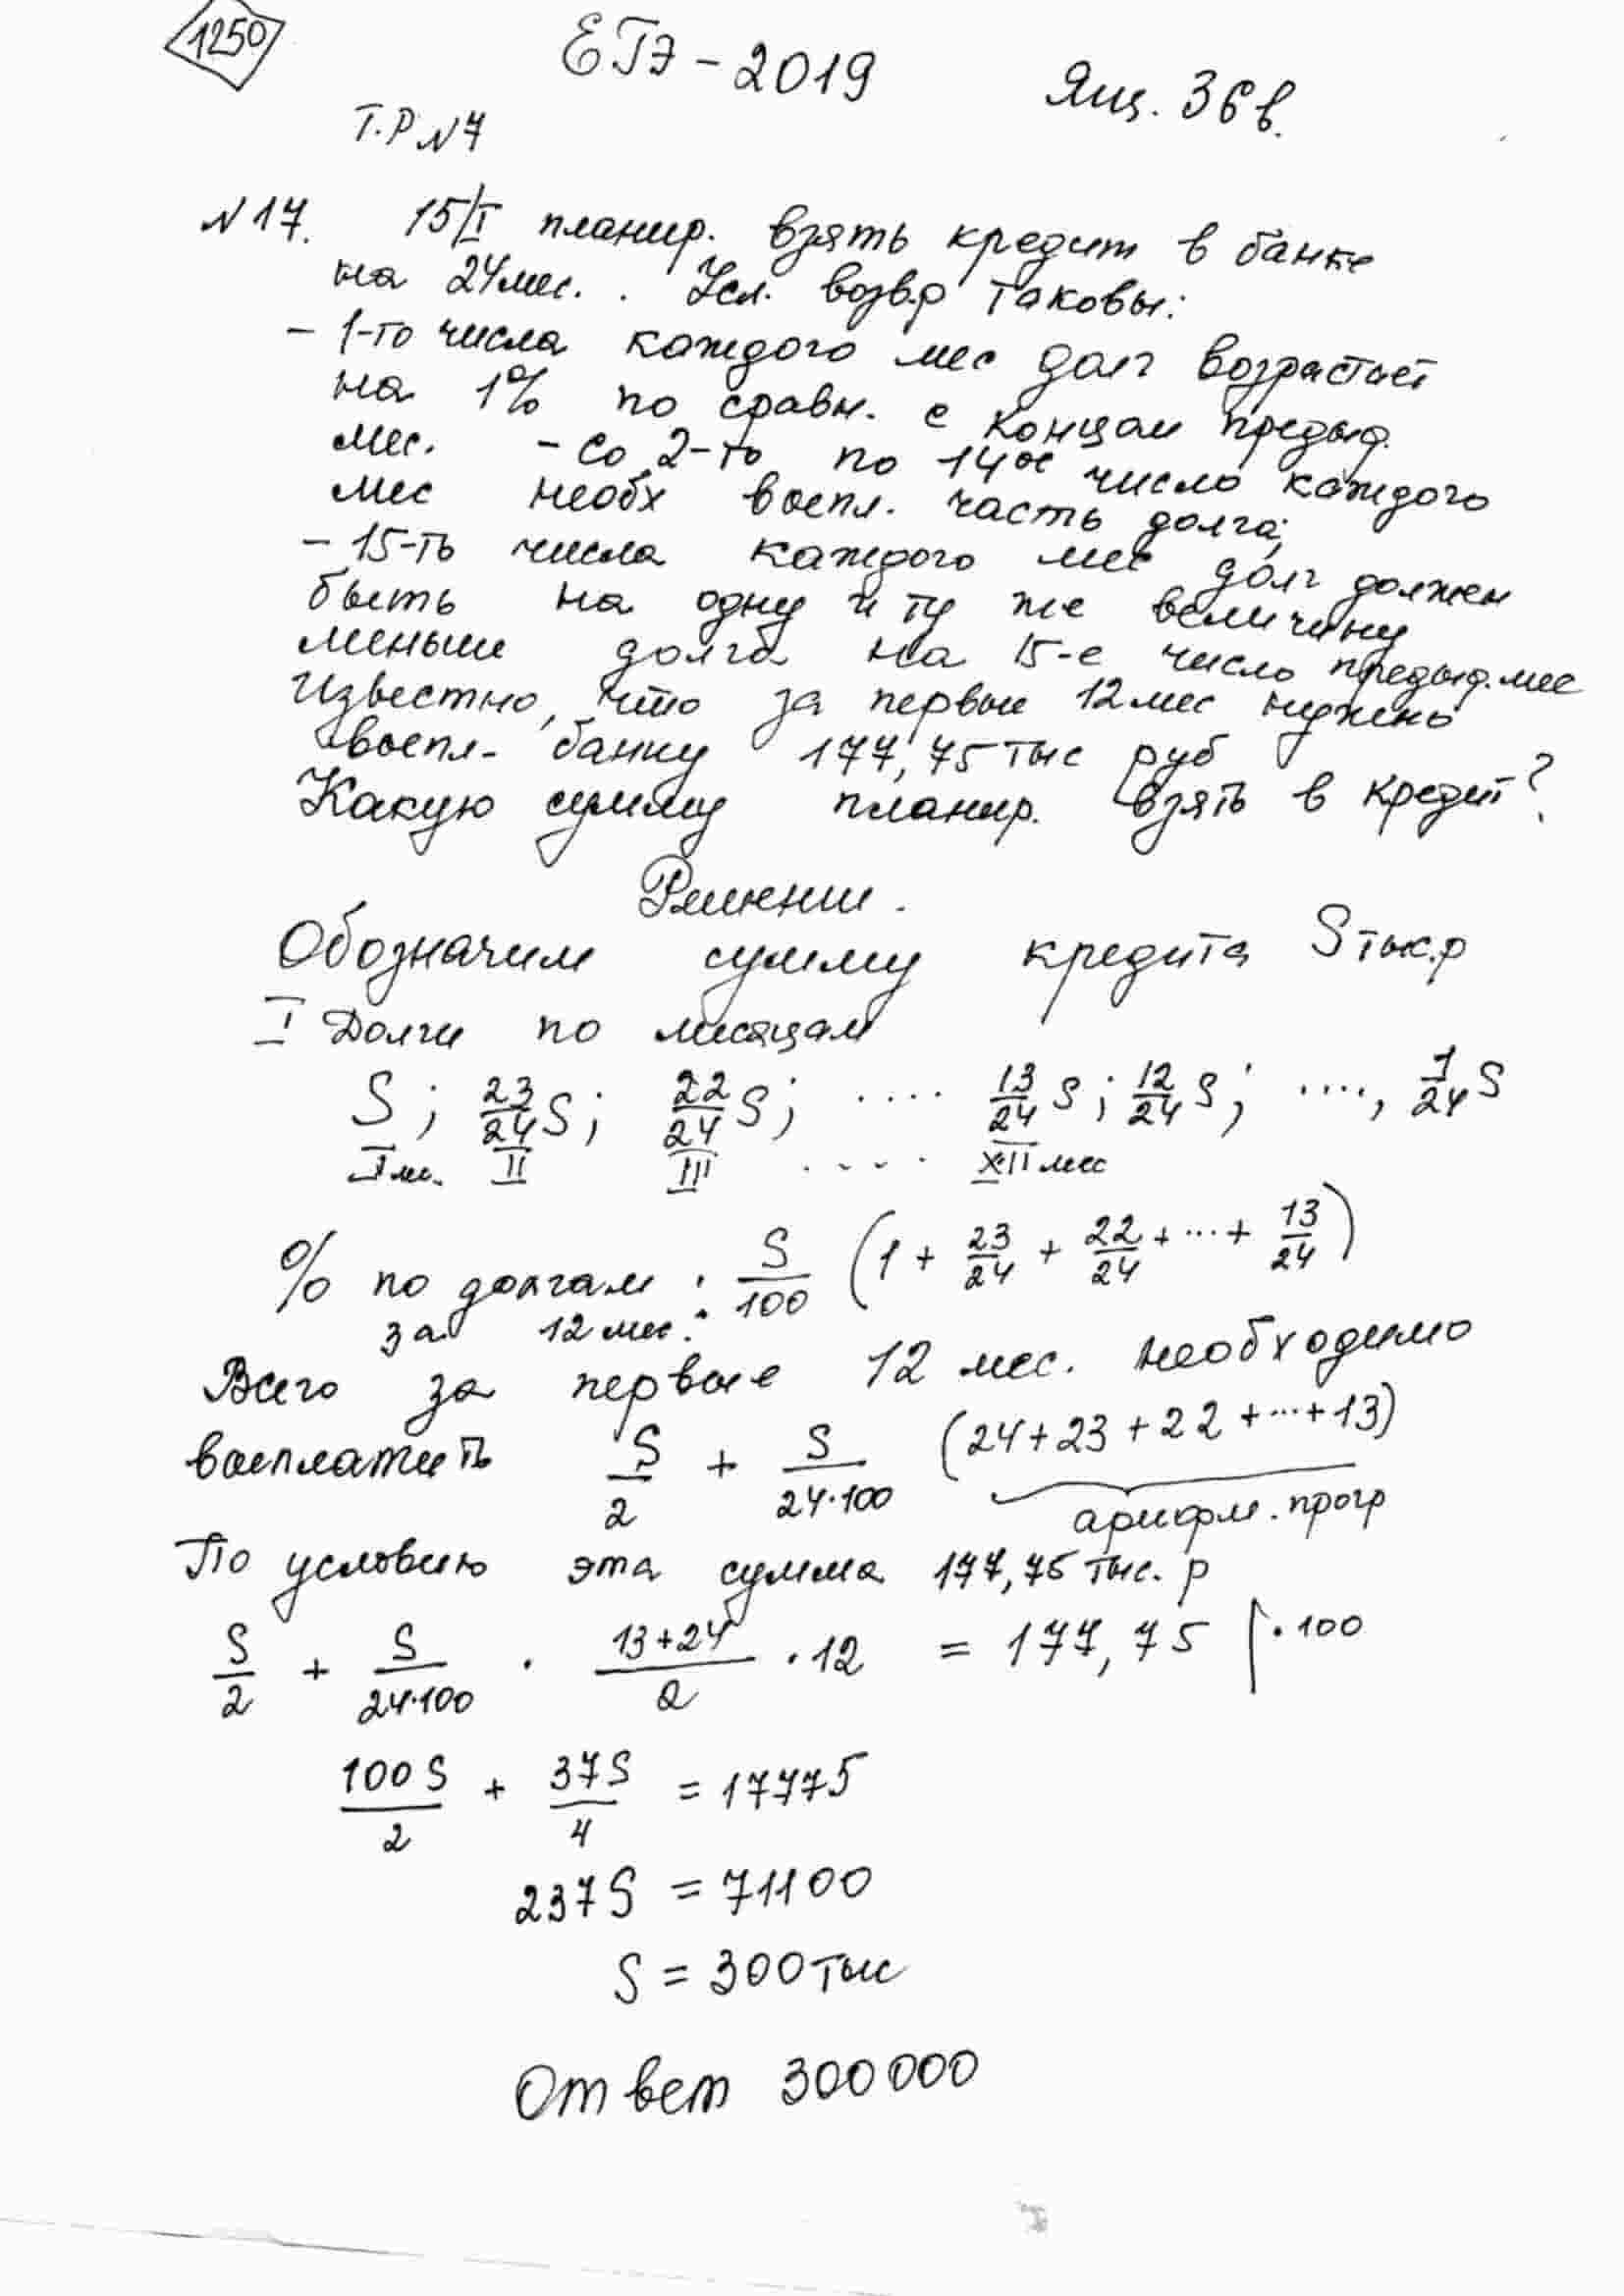 1250
ЕГЭ - 2019 Ящ. 36 в.
Т.Р N 7
N 17. 15/I планир. взять кредит в банке
на 24 мес. . Усл. возвр таковы:
- 1-го числа каждого мес долг возрастает
на 1% по сравн. с концом предыд.
мес. - Со 2-го по 14ое число каждого
мес необх выпл. часть долга;
- 15-го числа каждого мес долг должен
быть на одну и ту же величину
меньше долга на 15-е число предыд. мес
Известно, что за первые 12 мес нужно
выпл. банку 177,75 тыс руб
Какую сумму планир. взять в кредит?
Решение.
Обозначим сумму кредита S тыс.р
I Долги по месяцам
S; 23/24 S; 22/24 S; .... 13/24 S; 12/24 S; ...., 1/24 S
I м. II III .... XII мес
% по долгам : S/100 (1 + 23/24 + 22/24 + ... + 13/24)
за 12 мес.:
Всего за первые 12 мес. необходимо
выплатить S/2 + S/(24·100) (24+23+22+...+13)
арифм. прогр
По условию эта сумма 177,75 тыс. р
S/2 + S/(24·100) · (13+24)/2 · 12 = 177,75 | · 100
100S/2 + 37S/4 = 17775
237S = 71100
S = 300 тыс
Ответ 300 000